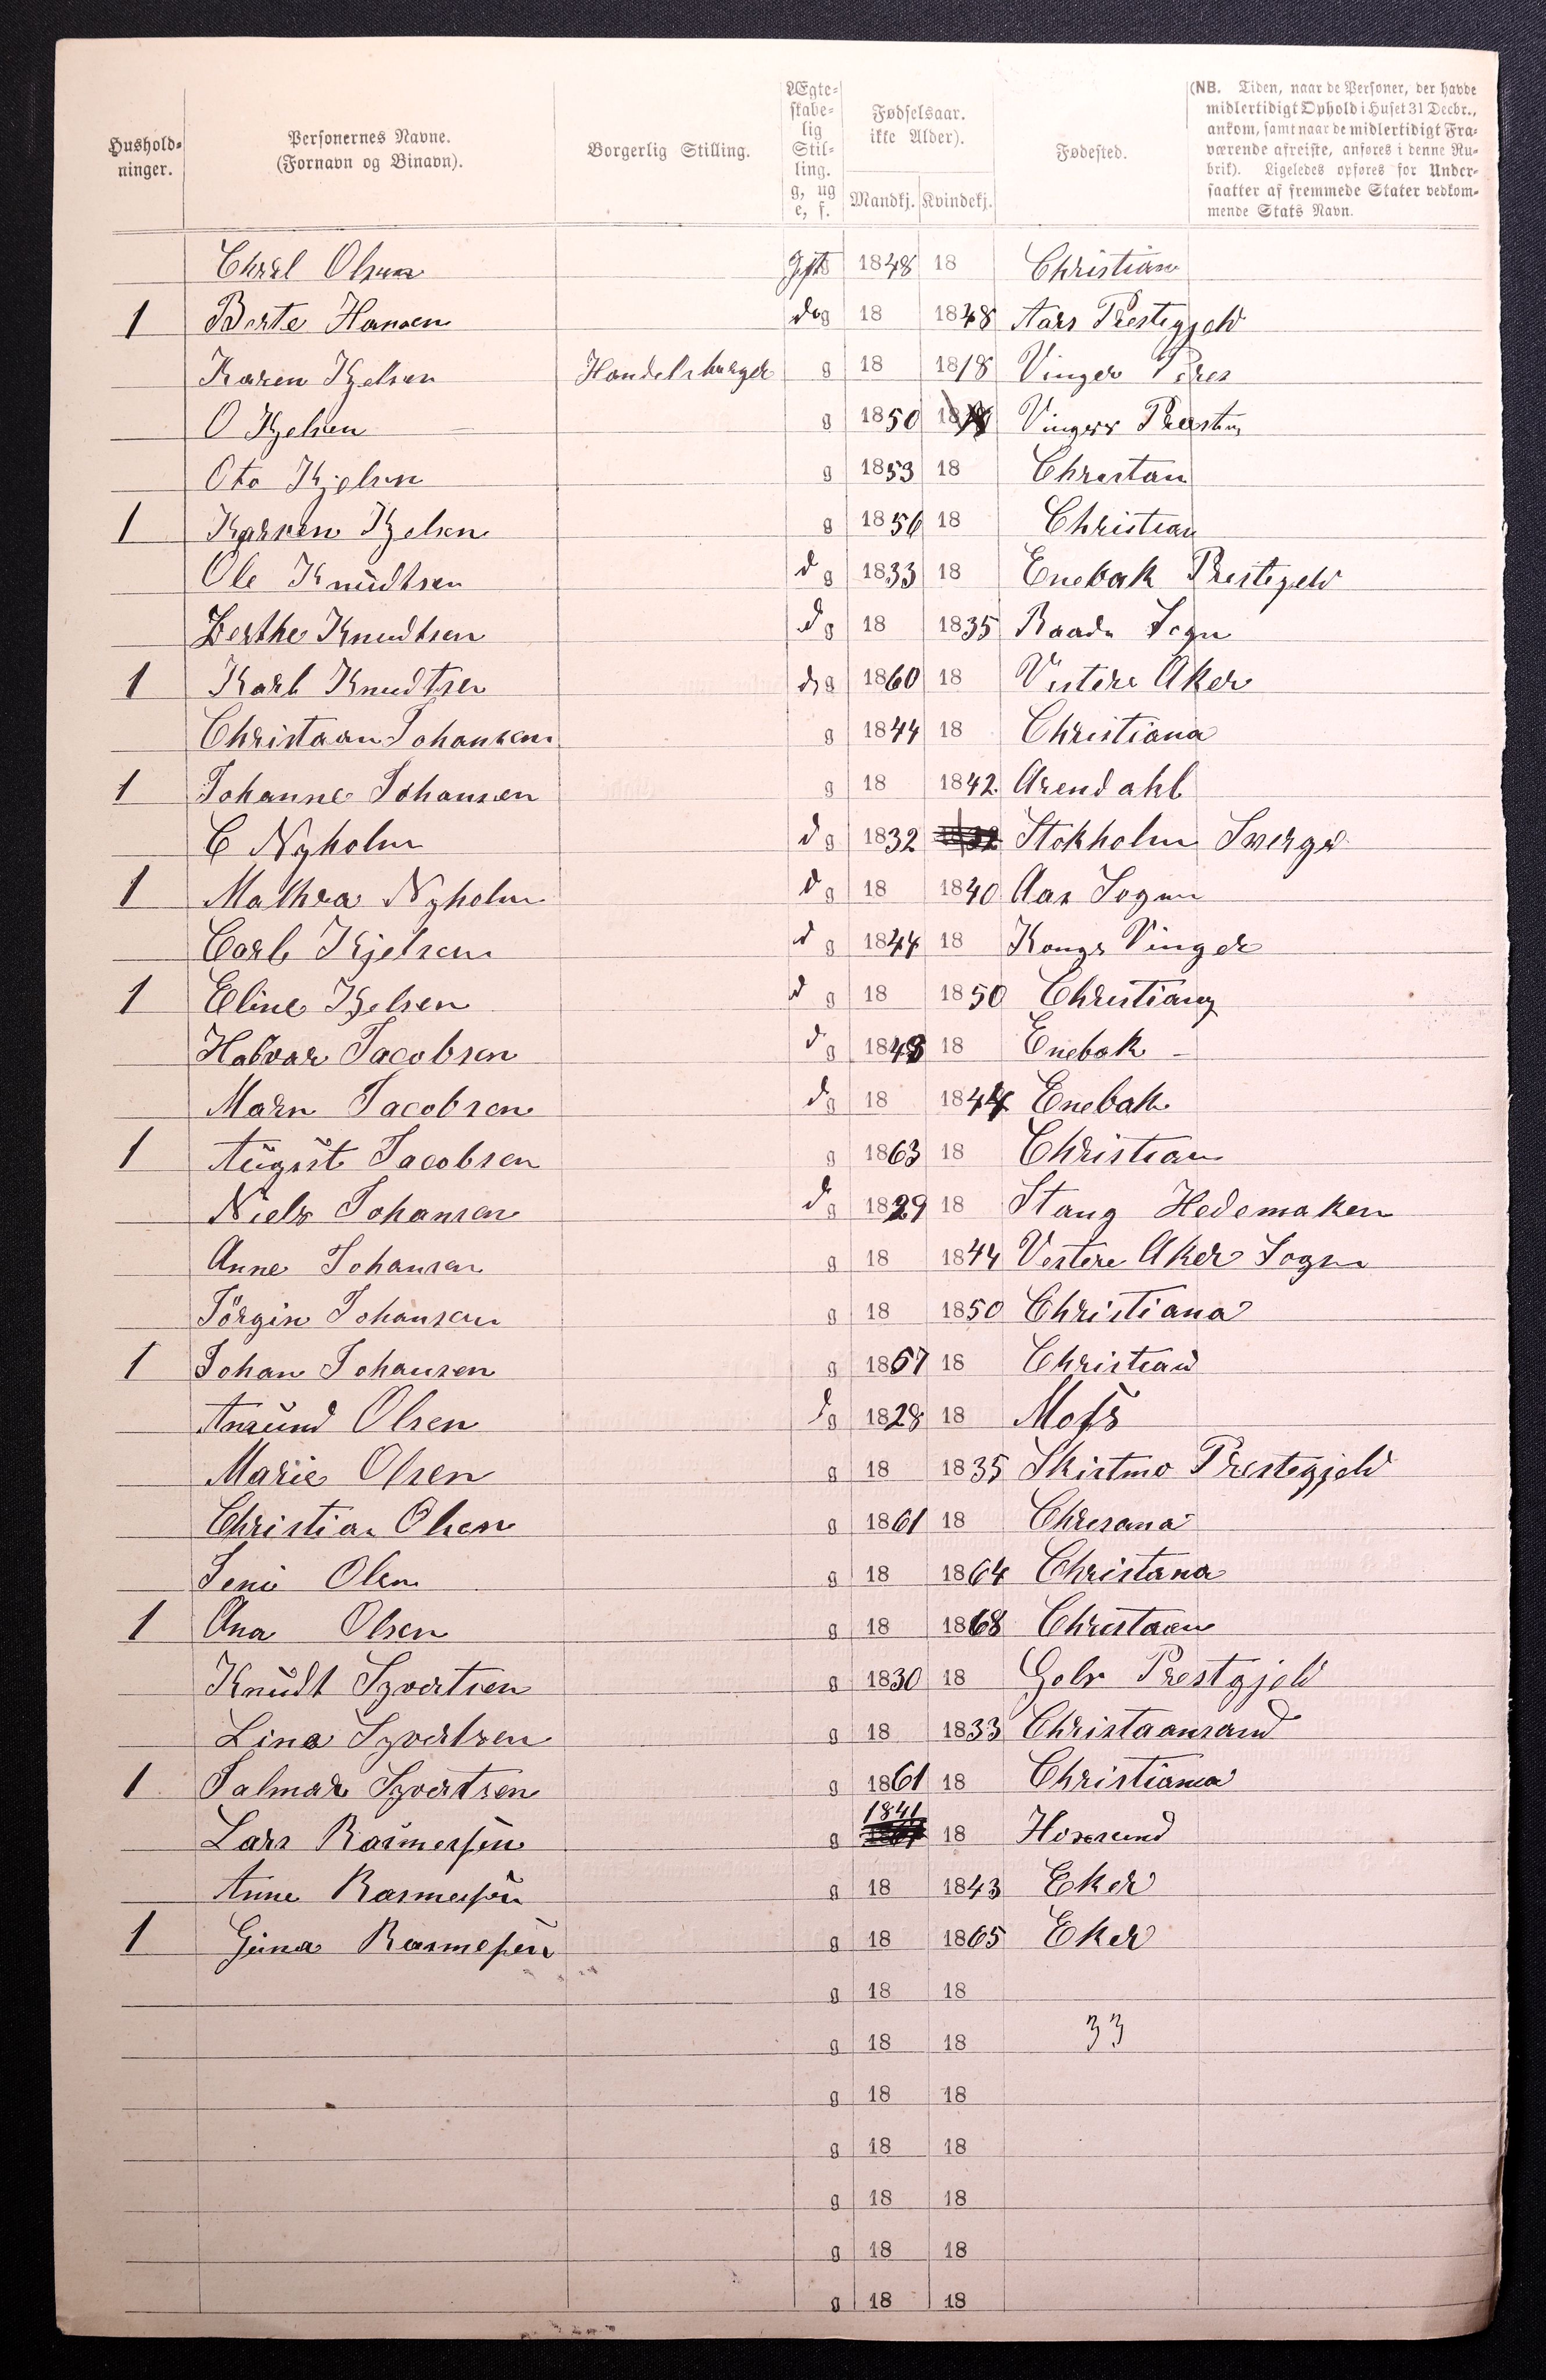 Hushold-
ninger.
Personernes Navne.
(Fornavn og Binavn).
Borgerlig Stilling.
Ægte-
skabe-
lig
Stil-
ling.
g, ug
e, f.
Fødselsaar.
ikke Alder).
Mandkj. Kvindekj.
Fødested.
(NB. Tiden, naar de Personer, der havde
midlertidigt Ophold i Huset 31 Decbr.,
ankom, samt naar de midlertidigt Fra-
værende afreiste, anføres i denne Ru-
brik). Ligeledes opføres for Under-
saatter af fremmede Stater vedkom-
mende Stats Navn.
Olsen gft 1848 18 Christian
1 Berte Hansen do g 18 1848 Aars Prestegjeld
Karen Kjelsen Handelsburger g 18 1818 Vinger
O Kjelsen g 1850 Vinger
Oto Kjelsen g 1853 18 Christan
1 Kjelsen g 1856 18 Christian
Ole Knudtsen d g 1833 18 Enebak Prestegeld
Berthe Knudtsen d g 18 1835 Raade Sogn
1 Karl Knudtsen d g 1860 18 Vestere Aker
Christaan Johansen g 1844 18 Christiana
1 Johanne Johansen g 18 1842 Arendahl
C Nyholm d g 1832 1832 Stokholm Sverge
1 Mathea Nyholm d g 18 1840 Aas Sogn
Carl Kjelsen d g 1844 18 Kongs Vinger
1 Eline Kjelsen d g 18 1850 Christiana
Halvar Jacobsen d g 1848 18 Enebak
Marn Jacobsen d g 18 1844 Enebak
1 August Jacobsen g 1863 18 Christian
Niels Johansen d g 1829 18 Stang Hedemaken
Anne Johansen g 18 1844 Vestere Aker Sogn
Jörgin Johansen g 18 1850 Christiana
1 Johan Johansen g 1857 18 Christian
Amund Olsen d g 1828 18 Moss
Marie Olsen g 18 1835 Skistmo Prestegjeld
Christian Olsen g 1861 18 Chresana
Jeni Olsen g 18 1864 Christana
1 Ana Olsen g 18 1868 Christaan
Knudt Syvertsen g 1830 18 Prestgjeld
Lina Syvertsen g 18 1833 Christaansand
1 Jalmar Syvertsen g 1861 18 Christiania
1841
Lars Rasmessen g 18
Anne Rasmessen g 18 1843 Eker
1 Gina Rasmessen g 18 1865 Eker
g 18 18
g 18 18 33
g 18 18
g 18 18
g 18 18
g 18 18
g 18 18